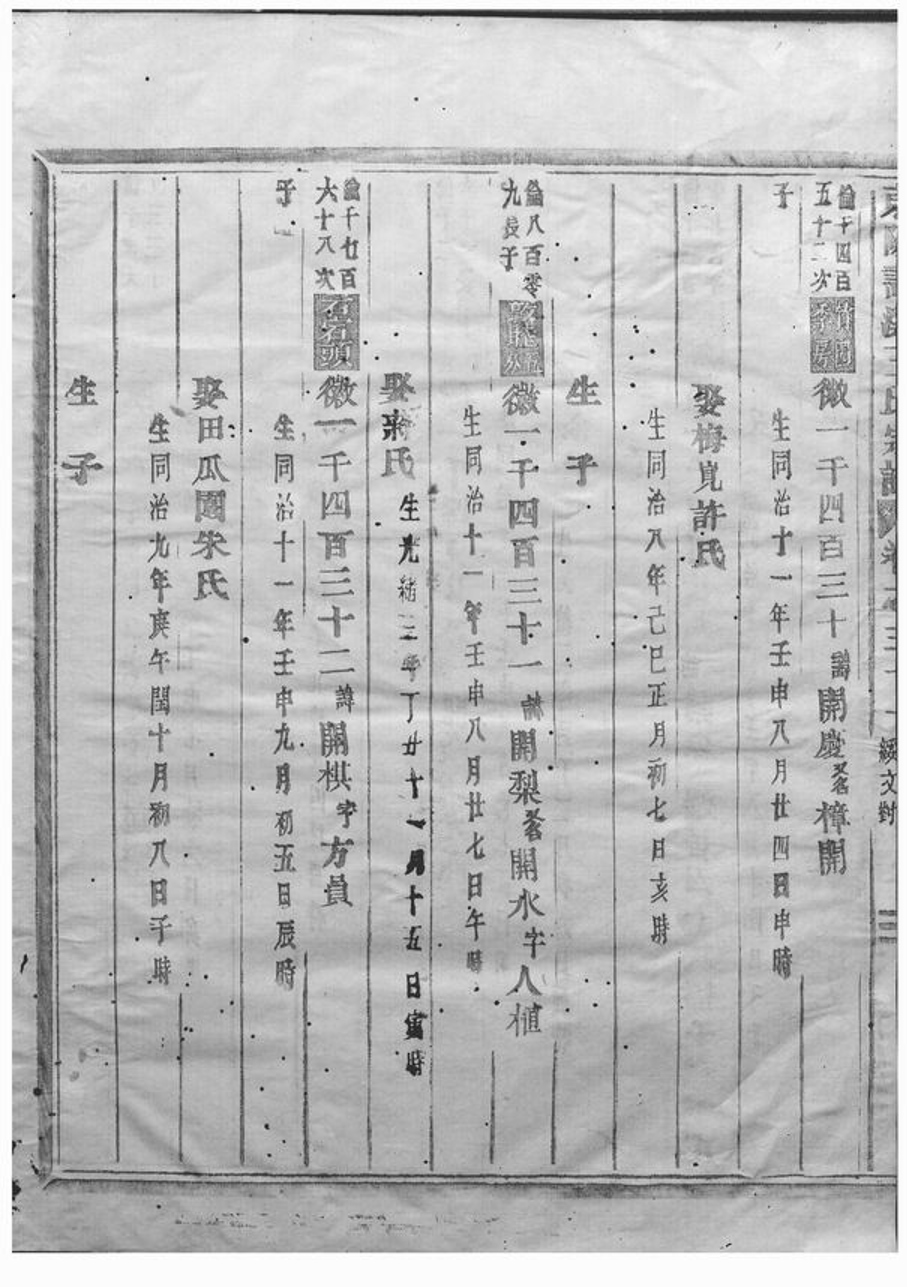 綏文對
倫千四百五十二次子
徽一千四百三十 諱開慶又名樟開
生同治十一年壬申八月廿四日申時
娶梅峴許氏
生同治八年己巳正月初七日亥時
生子
倫八百零九長子
徽一千四百三十一 諱開梨又名開水字人植
生同治十一年壬申八月廿七日午時
娶蔣氏 生光緒三年丁丑十一月十五日寅時
倫千七百六十八次子
岩頭
徽一千四百三十二 諱開棋字方員
生同治十一年壬申九月初五日辰時
娶田瓜園朱氏
生同治九年庚午閏十月初八日子時
生子